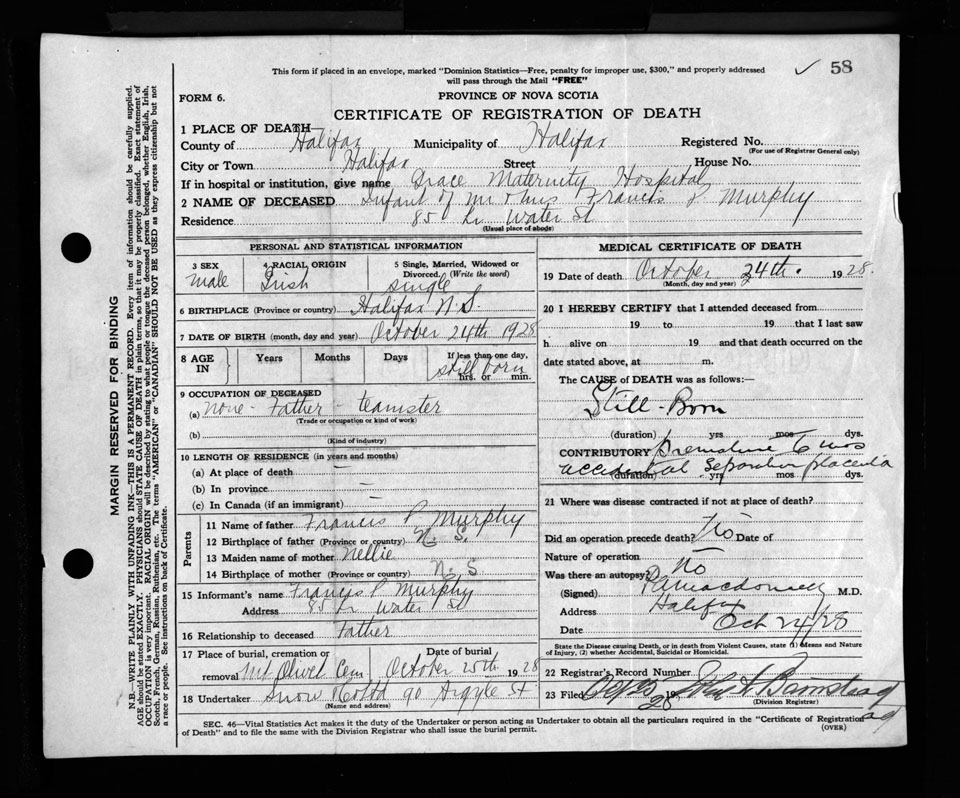 ✓ 58
This form if placed in an envelope, marked "Dominion Statistics—Free, penalty for improper use, $300," and properly addressed
will pass through the Mail "FREE"
FORM 6.
PROVINCE OF NOVA SCOTIA
CERTIFICATE OF REGISTRATION OF DEATH
1 PLACE OF DEATH—
County of Halifax Municipality of Halifax Registered No.
(For use of Registrar General only)
City or Town Halifax Street House No.
If in hospital or institution, give name Grace Maternity Hospital
2 NAME OF DECEASED Infant of Mr & Mrs Francis P. Murphy
Residence 85 Lr Water St
(Usual place of abode)
PERSONAL AND STATISTICAL INFORMATION
3 SEX 4 RACIAL ORIGIN 5 Single, Married, Widowed or
Divorced. (Write the word)
male Irish single
6 BIRTHPLACE (Province or country) Halifax N S.
7 DATE OF BIRTH (month, day and year) October 24th 1928
8 AGE IN Years Months Days If less than one day,
still born
hrs. or min.
9 OCCUPATION OF DECEASED
(a) none - Father - teamster
(Trade or occupation or kind of work)
(b)
(Kind of industry)
10 LENGTH OF RESIDENCE (in years and months)
(a) At place of death —
(b) In province —
(c) In Canada (if an immigrant) —
Parents
11 Name of father Francis P Murphy
12 Birthplace of father (Province or country) N. S.
13 Maiden name of mother Nellie
14 Birthplace of mother (Province or country) N. S
15 Informant's name Francis P Murphy
Address 85 Lr Water St
16 Relationship to deceased Father
17 Place of burial, cremation or Date of burial
removal Mt Olivet Cem October 25th 1928
18 Undertaker Snow & Co Ltd 90 Argyle St
(Name and address)
MEDICAL CERTIFICATE OF DEATH
19 Date of death October 24th. 1928.
(Month, day and year)
20 I HEREBY CERTIFY that I attended deceased from
19 to 19 that I last saw
h alive on 19 and that death occurred on the
date stated above, at m.
The CAUSE of DEATH was as follows:—
Still-Born
(duration) yrs mos dys.
CONTRIBUTORY Premature 6 mos
accidental Separation placenta
(duration) yrs mos dys.
21 Where was disease contracted if not at place of death?
Did an operation precede death? No Date of
Nature of operation —
Was there an autopsy? No
(Signed) Macdonnell M.D.
Address Halifax
Date Oct 24/28
State the Disease causing Death, or in death from Violent Causes, state (1) Means and Nature
of Injury, (2) whether Accidental, Suicidal or Homicidal.
22 Registrar's Record Number
23 Filed 28 John
(Division Registrar)
SEC. 46—Vital Statistics Act makes it the duty of the Undertaker or person acting as Undertaker to obtain all the particulars required in the "Certificate of Registration
of Death" and to file the same with the Division Registrar who shall issue the burial permit.
(OVER)
MARGIN RESERVED FOR BINDING
N.B. WRITE PLAINLY, WITH UNFADING INK—THIS IS A PERMANENT RECORD. Every item of information should be carefully supplied.
AGE should be stated EXACTLY. PHYSICIANS should STATE CAUSE OF DEATH in plain terms, so that it may be properly classified. Exact statement of
OCCUPATION is very important. RACIAL ORIGIN will be described by stating to what people or tongue the deceased person belonged, whether English, Irish,
Scotch, French, German, Russian, Ruthenian, etc. The terms "AMERICAN" or "CANADIAN" SHOULD NOT BE USED as they express citizenship but not
a race or people. See instructions on back of Certificate.